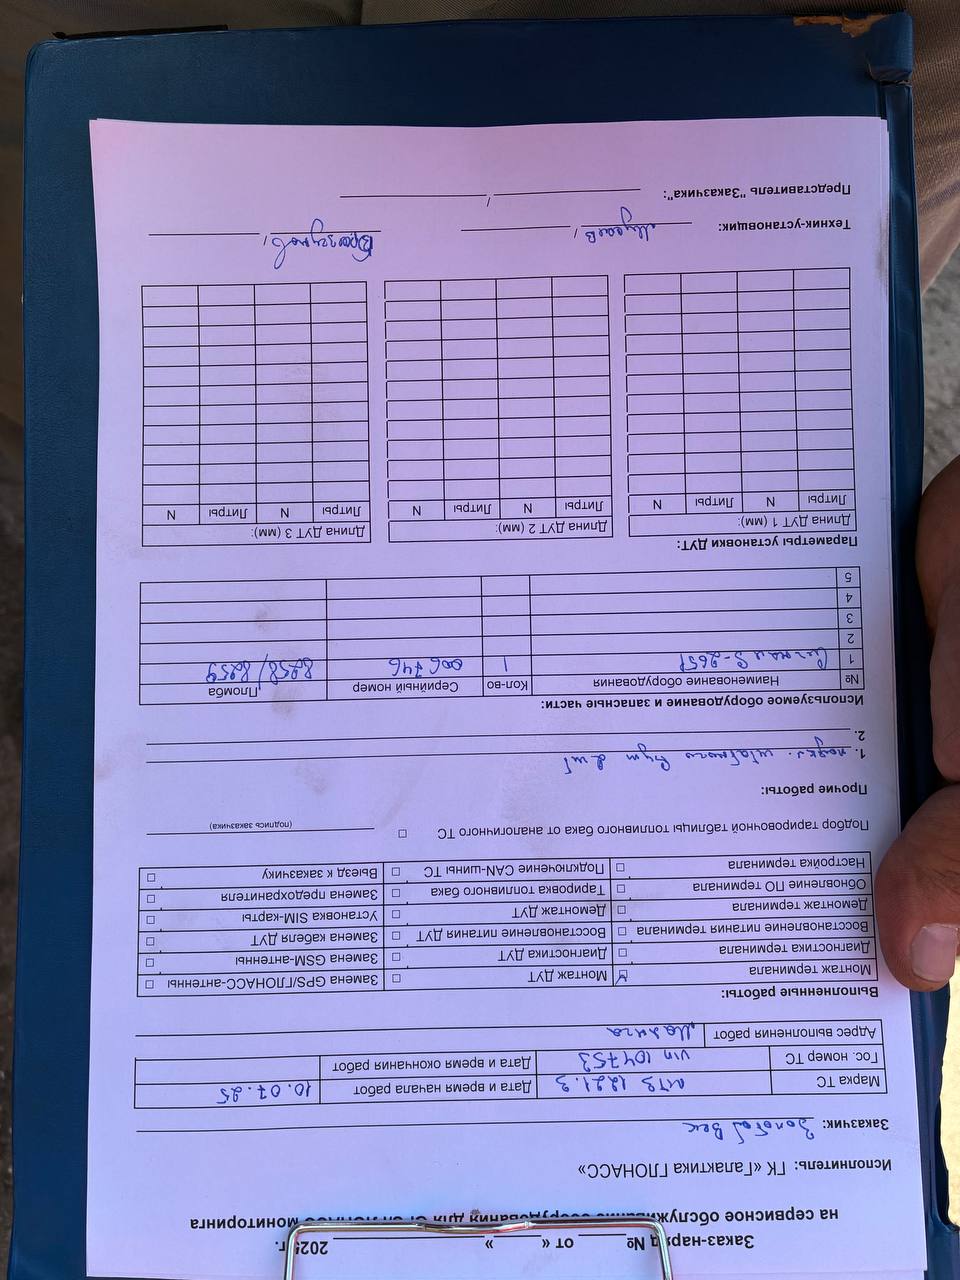 Заказ-наряд № от « » 2025 г.
на сервисное обслуживание оборудования для GPS/ГЛОНАСС мониторинга
Исполнитель: ГК «Галактика ГЛОНАСС»
Заказчик: Золотой Век
Марка ТС МТЗ 1221.3 Дата и время начала работ 10.07.25
Гос. номер ТС vin 104753 Дата и время окончания работ
Адрес выполнения работ
Выполненные работы:
Монтаж терминала ☑ Монтаж ДУТ □ Замена GPS/ГЛОНАСС-антенны □
Диагностика терминала □ Диагностика ДУТ □ Замена GSM-антенны □
Восстановление питания терминала □ Восстановление питания ДУТ □ Замена кабеля ДУТ □
Демонтаж терминала □ Демонтаж ДУТ □ Установка SIM-карты □
Обновление ПО терминала □ Тарировка топливного бака □ Замена предохранителя □
Настройка терминала □ Подключение CAN-шины ТС □ Выезд к заказчику □
Подбор тарировочной таблицы топливного бака от аналогичного ТС □
(подпись заказчика)
Прочие работы:
1. подкл. штатного дут 2 шт
2.
Используемое оборудование и запасные части:
№ Наименование оборудования Кол-во Серийный номер Пломба
1 Сигнал S-2651 1 006746 8258/8259
2
3
4
5
Параметры установки ДУТ:
Длина ДУТ 1 (мм): Длина ДУТ 2 (мм): Длина ДУТ 3 (мм):
Литры N Литры N Литры N Литры N Литры N Литры N
Техник-установщик: Мусаев / /
Представитель "Заказчика": /